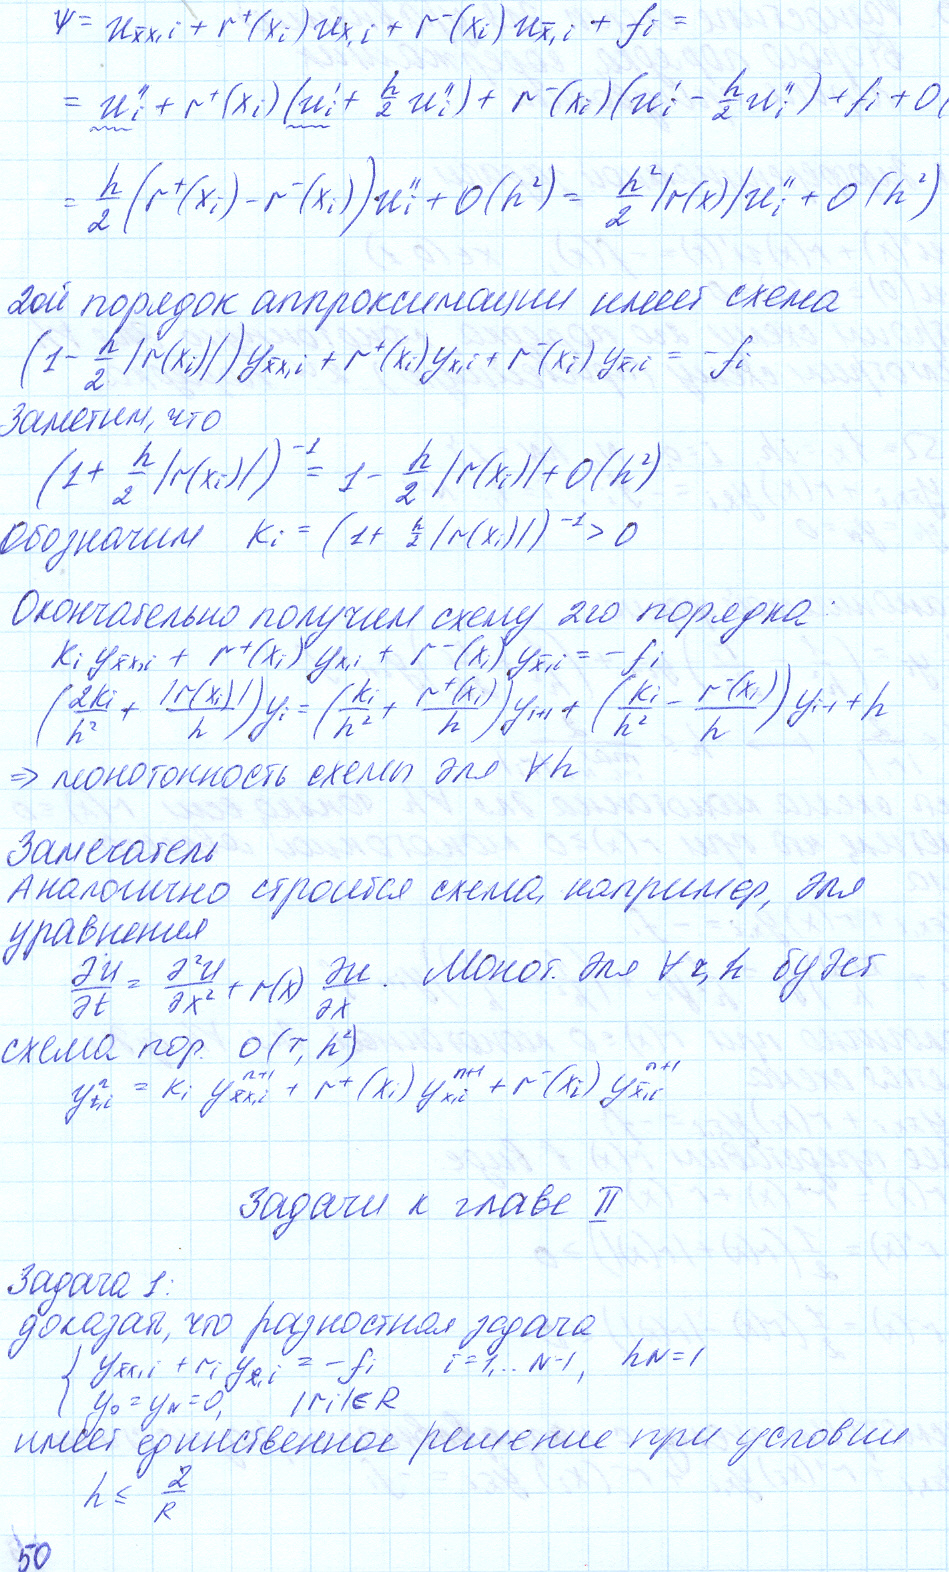 Ψ = u_{x̄x,i} + r⁺(x_i) u_{x,i} + r⁻(x_i) u_{x̄,i} + f_i =
= u''_i + r⁺(x_i)(u'_i + h/2 u''_i) + r⁻(x_i)(u'_i - h/2 u''_i) + f_i + O(
= h/2 (r⁺(x_i) - r⁻(x_i)) u''_i + O(h²) = h²/2 |r(x)| u''_i + O(h²)
2ой порядок аппроксимации имеет схема
(1 - h/2 |r(x_i)|) y_{x̄x,i} + r⁺(x_i) y_{x,i} + r⁻(x_i) y_{x̄,i} = -f_i
Заметим, что
(1 + h/2 |r(x_i)|)⁻¹ = 1 - h/2 |r(x_i)| + O(h²)
Обозначим K_i = (1 + h/2 |r(x_i)|)⁻¹ > 0
Окончательно получим схему 2го порядка:
K_i y_{x̄x,i} + r⁺(x_i) y_{x,i} + r⁻(x_i) y_{x̄,i} = -f_i
(2K_i/h² + |r(x_i)|/h) y_i = (K_i/h² + r⁺(x_i)/h) y_{i+1} + (K_i/h² - r⁻(x_i)/h) y_{i-1} + h
⇒ монотонность схемы для ∀h
Замечатель
Аналогично строится схема, например, для
уравнения
∂u/∂t = ∂²u/∂x² + r(x) ∂u/∂x. Монот. для ∀ τ, h будет
схема пор. O(τ, h²)
y^n_{t,i} = K_i y^{n+1}_{x̄x,i} + r⁺(x_i) y^{n+1}_{x,i} + r⁻(x_i) y^{n+1}_{x̄,i}
Задачи к главе II
Задача 1:
доказат, что разностная задача
{ y_{x̄x,i} + r_i y_{x̊,i} = -f_i i = 1,.. N-1, hN = 1
y_0 = y_N = 0, |r_i| ∈ R
имеет единственное решение при условии
h ≤ 2/R
50